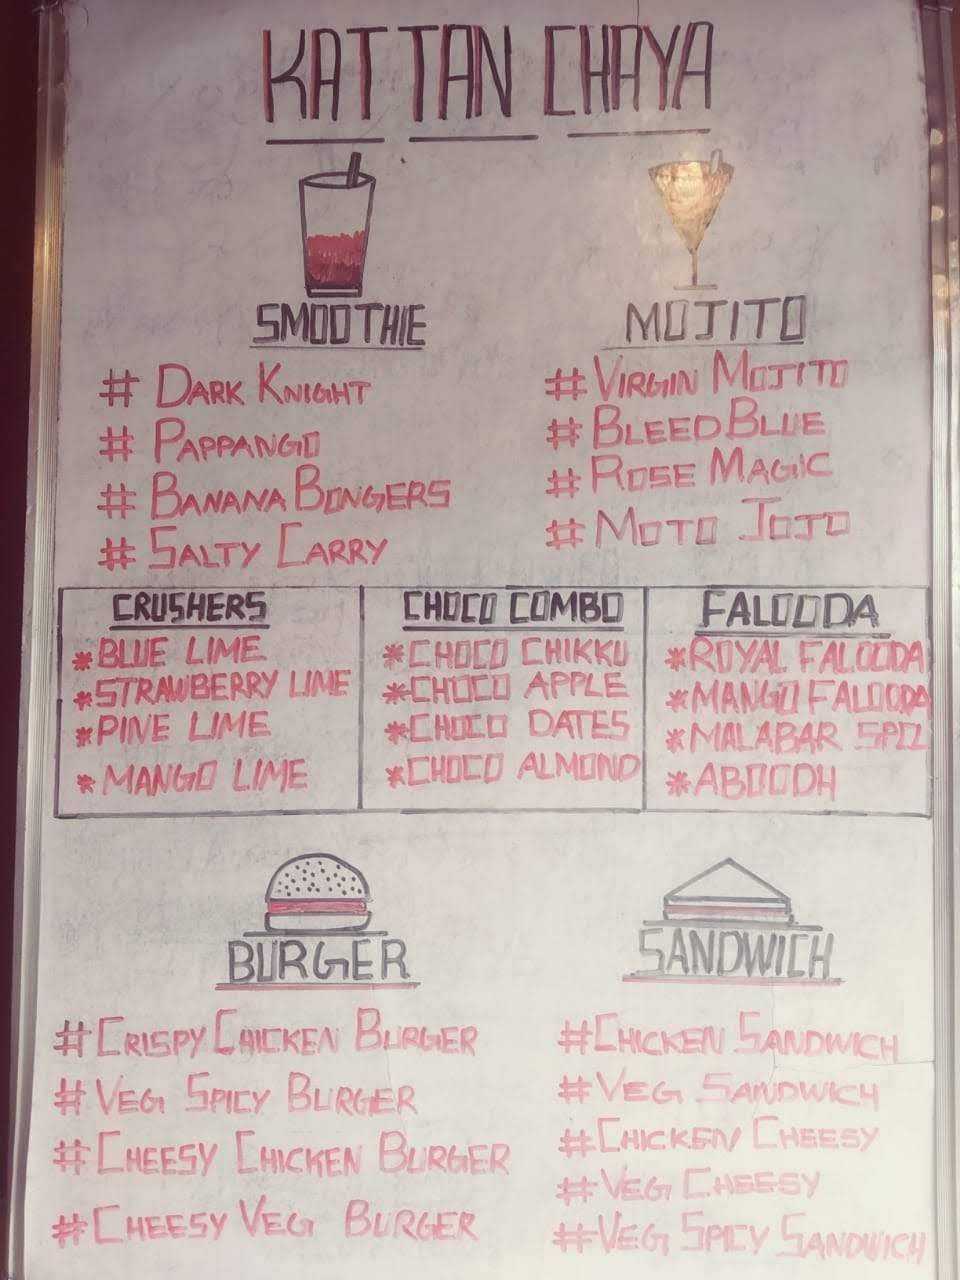 KATTAN CHAYA
SMOOTHIE
# DARK KNIGHT
# PAPPANGO
# BANANA BONGERS
# SALTY CARRY
MOJITO
# VIRGIN MOJITO
# BLEED BLUE
# ROSE MAGIC
# MOTO JOJO
CRUSHERS
*BLUE LIME
*STRAWBERRY LIME
*PINE LIME
*MANGO LIME
CHOCO COMBO
*CHOCO CHIKKU
*CHOCO APPLE
*CHOCO DATES
*CHOCO ALMOND
FALOODA
*ROYAL FALOODA
*MANGO FALOODA
*MALABAR SPCL
*ABOODH
BURGER
#CRISPY CHICKEN BURGER
#VEG SPICY BURGER
#CHEESY CHICKEN BURGER
#CHEESY VEG BURGER
SANDWICH
#CHICKEN SANDWICH
#VEG SANDWICH
#CHICKEN CHEESY
#VEG CHEESY
#VEG SPICY SANDWICH